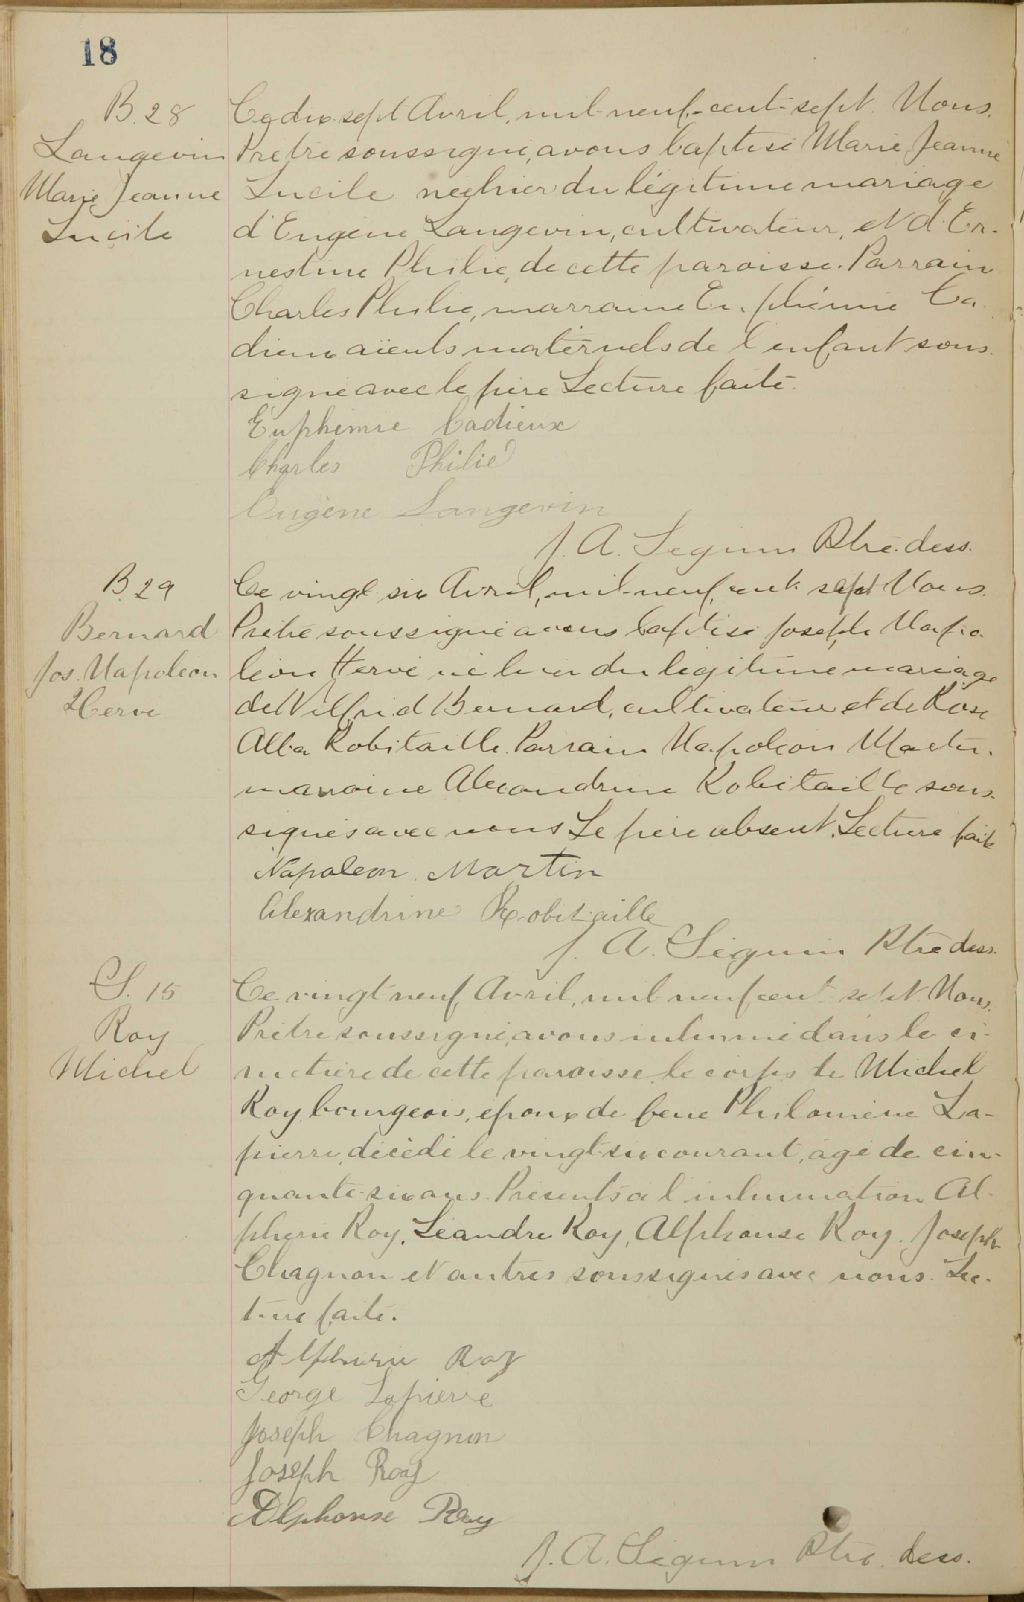 18
B. 28
Langevin
Marie Jeanne
Lucile
Ce dix-sept Avril, mil-neuf-cent-sept. Nous.
Prêtre soussigné, avons baptisé Marie Jeanne
Lucile née hier du légitime mariage
d'Eugène Langevin, cultivateur, et d'Er-
nestine Philie, de cette paroisse. Parrain
Charles Philie, marraine Euphémie Ca
dieux aïeuls maternels de l'enfant sous
signé avec le père Lecture faite.
Euphémie Cadieux
Charles Philie
Eugène Langevin
J. A. Séguin Ptre. dess.
B. 29
Bernard
Jos. Napoléon
Hervé
Ce vingt six Avril, mil-neuf-cent-sept Nous.
Prêtre soussigné avons baptisé Joseph Napo
léon Hervé né hier du légitime mariage
de Wilfrid Bernard, cultivateur et de Rose
Alba Robitaille. Parrain Napoléon Martin.
marraine Alexandrine Robitaille sous-
signés avec nous Le père absent. Lecture faite
Napoleon Martin
Alexandrine Robitaille
J. A. Séguin Ptre dess.
S. 15
Roy
Michel
Ce vingt neuf Avril, mil neuf cent sept Nous.
Prêtre soussigné, avons inhumé dans le ci-
metière de cette paroisse le corps de Michel
Roy bourgeois, époux de feue Philomène La-
pierre, décédé le vingt-six courant, âgé de cin-
quante-six ans. Présents à l'inhumation Al-
phérie Roy, Léandre Roy, Alphonse Roy. Joseph
Chagnon et autres soussignés avec nous. Lec-
ture faite.
Alphérie Roy
George Lapierre
Joseph Chagnon
Joseph Roy
Alphonse Roy
J. A. Séguin Ptre. dess.